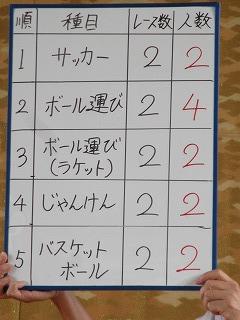 順 種目 レース数 人数
1 サッカー 2 2
2 ボール運び 2 4
3 ボール運び(ラケット) 2 2
4 じゃんけん 2 2
5 バスケットボール 2 2